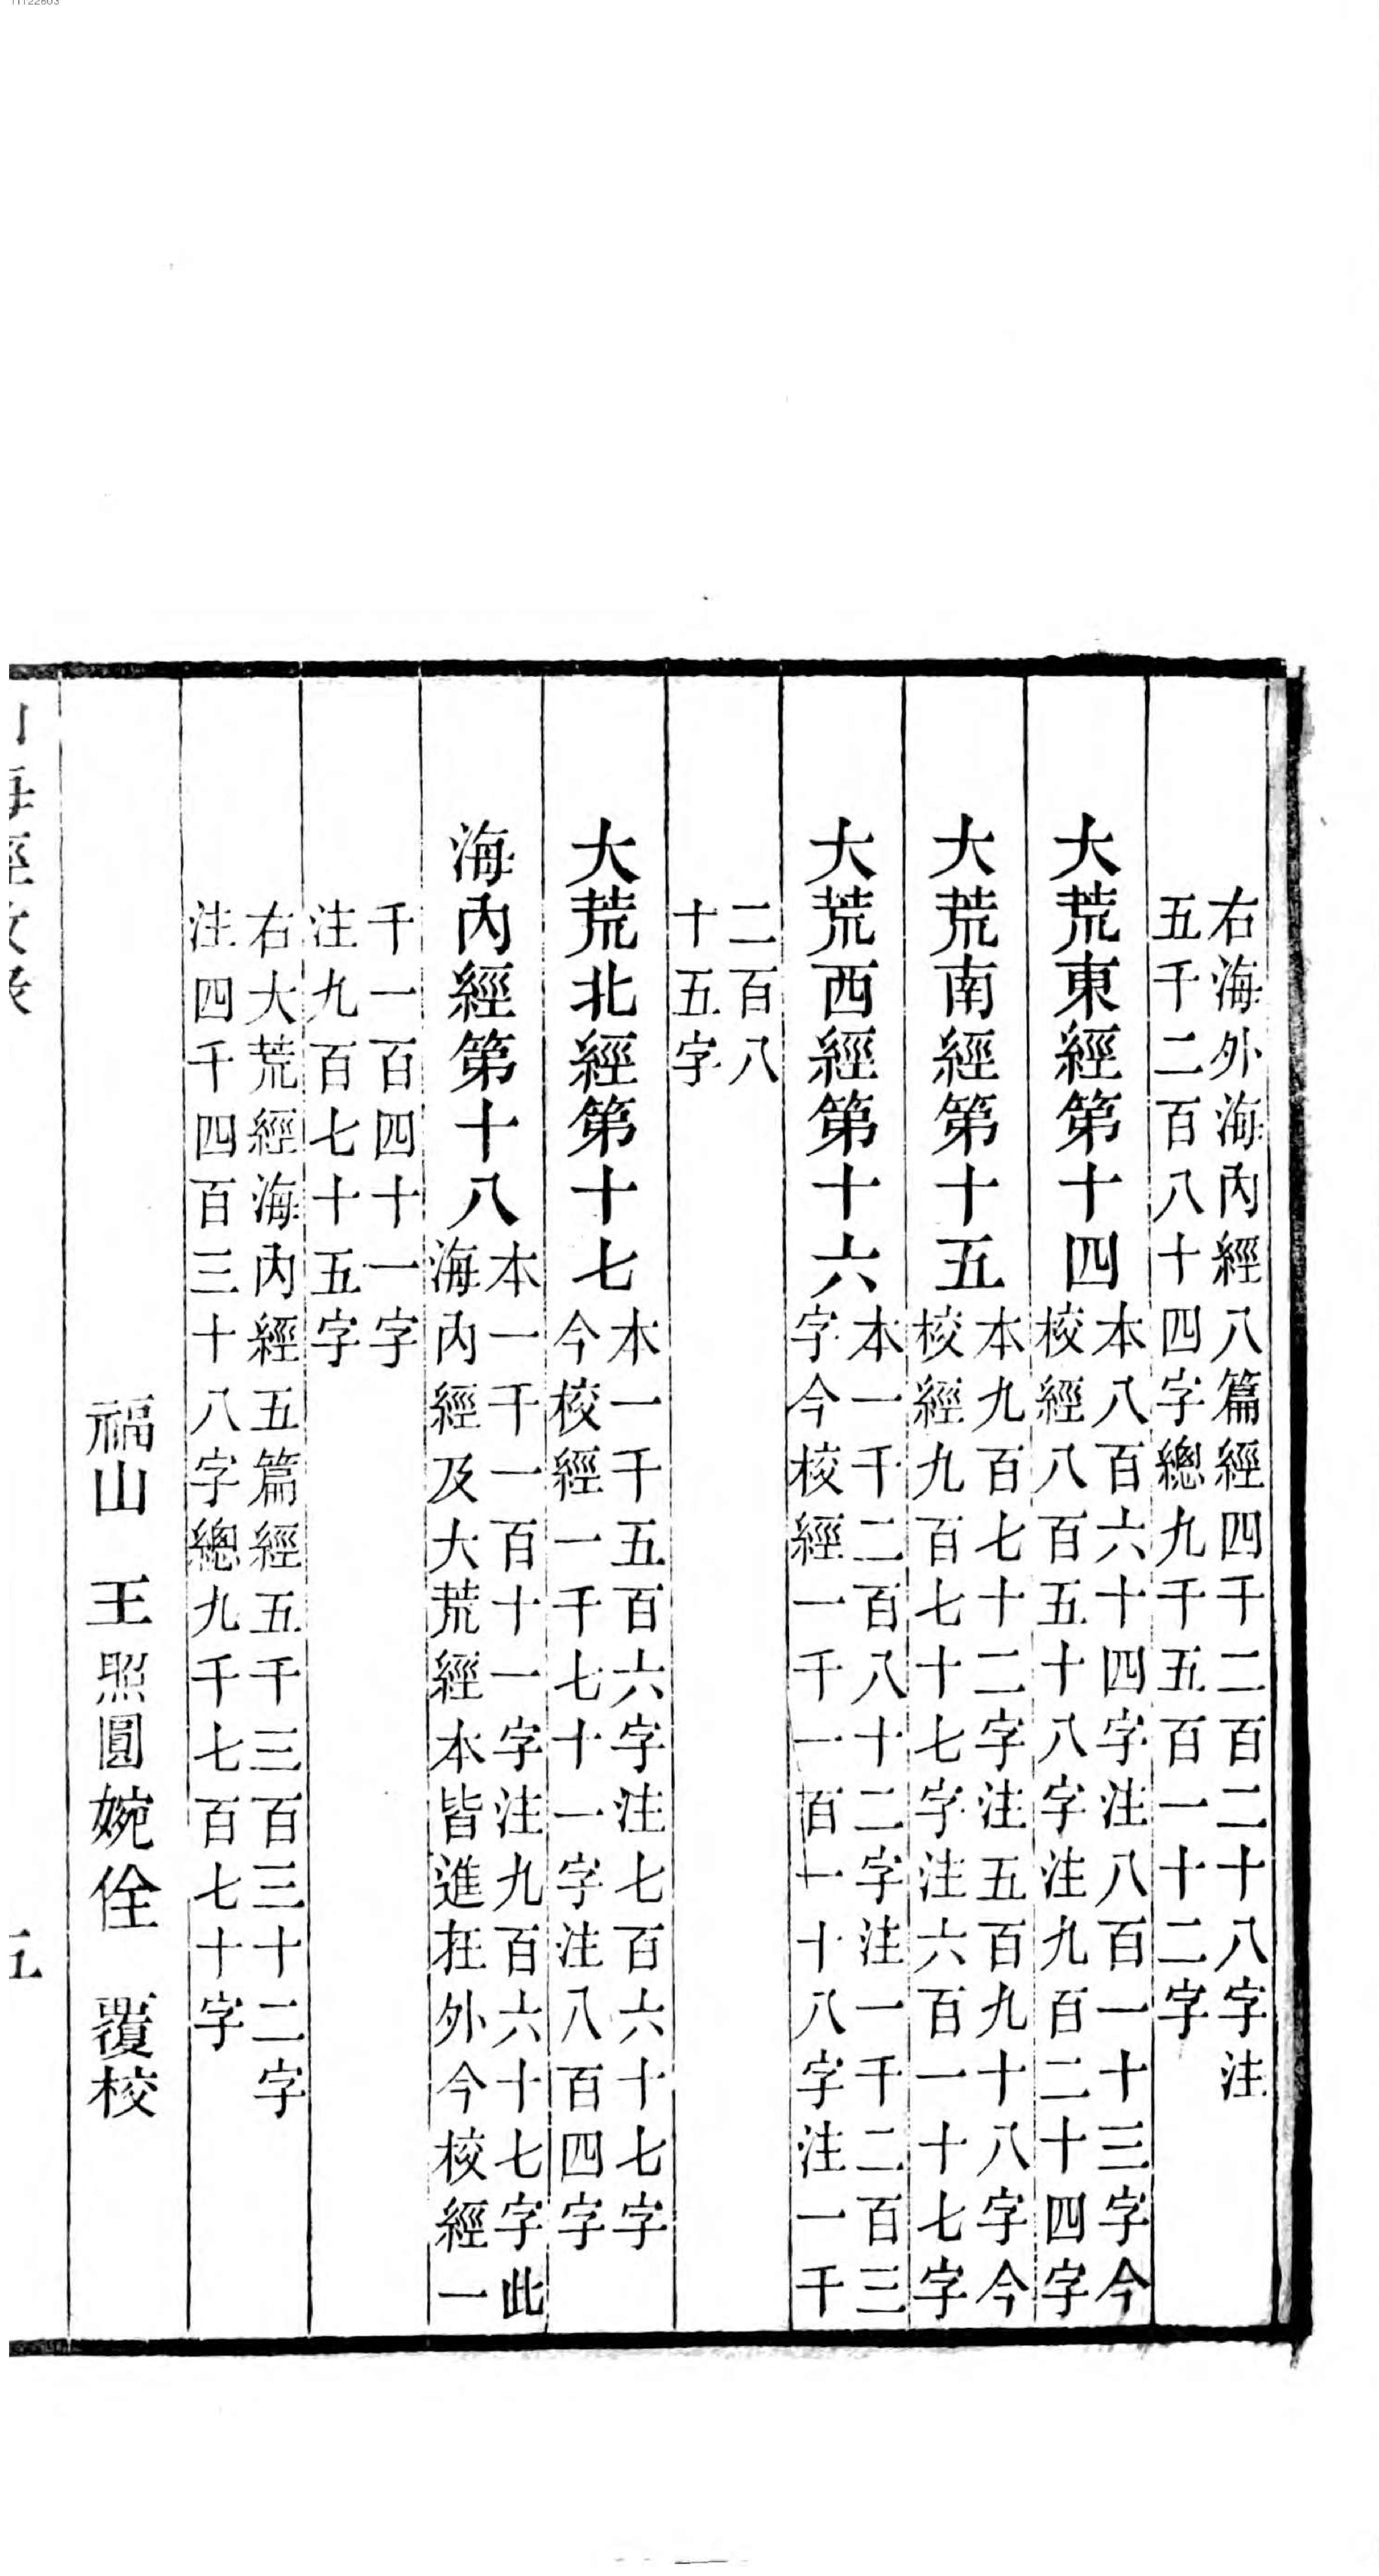 右海外海內經八篇經四千二百二十八字注
五千二百八十四字總九千五百一十二字
大荒東經第十四
本八百六十四字注八百一十三字今
校經八百五十八字注九百二十四字
大荒南經第十五
本九百七十二字注五百九十八字今
校經九百七十七字注六百一十七字
大荒西經第十六
本一千二百八十二字注一千二百三
字今校經一千一百一十八字注一千
二百八
十五字
大荒北經第十七
本一千五百六字注七百六十七字
今校經一千七十一字注八百四字
海內經第十八
本一千一百十一字注九百六十七字此
海內經及大荒經本皆進在外今校經一
千一百四十一字
注九百七十五字
右大荒經海內經五篇經五千三百三十二字
注四千四百三十八字總九千七百七十字
福山 王照圓婉佺 覆校
五